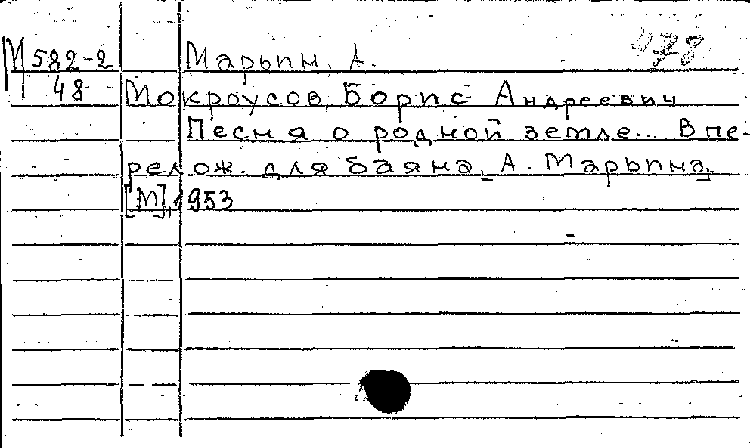 М 582-2 Марьин, А.
48 Мокроусов, Борис Андреевич
Песня о родной земле... В пе-
релож. для баяна А. Марьина.
[М], 1953
478